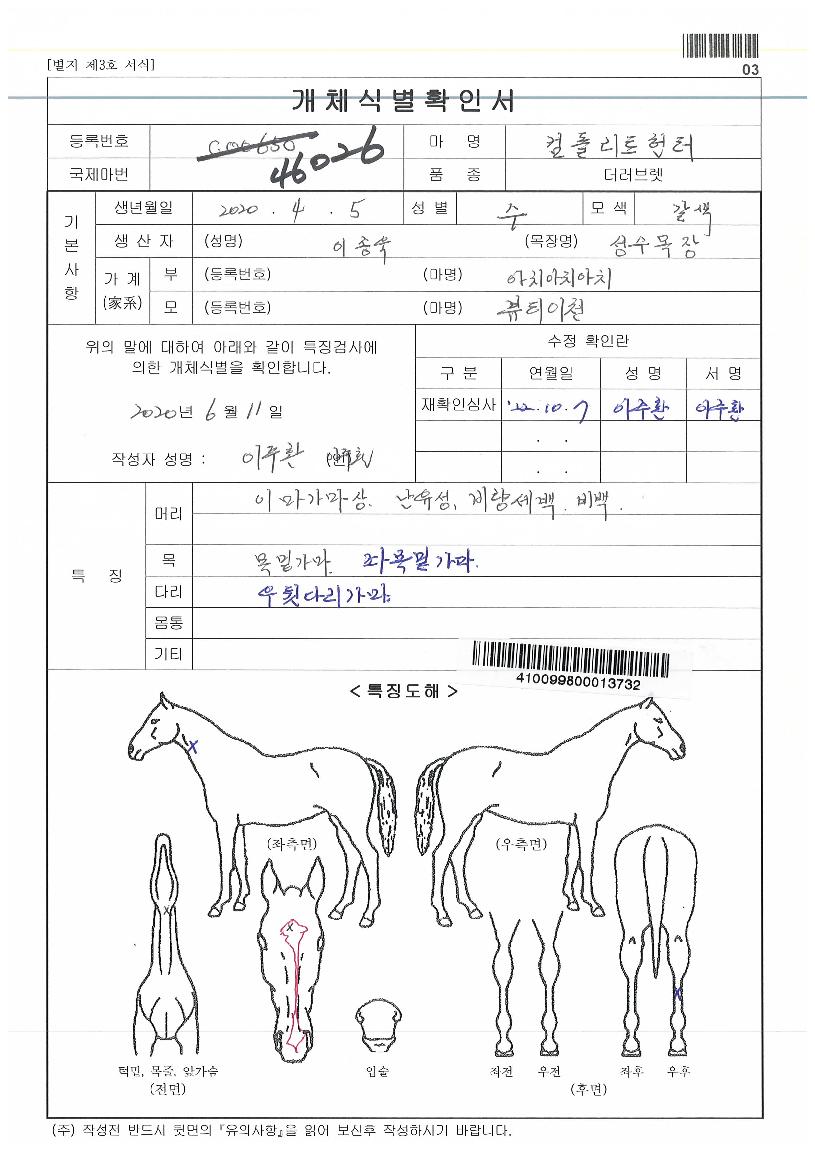 [별지 제3호 서식]
03
개체식별확인서
등록번호 마 명 컬돌리트헌터
46026
국제마번 품 종 더러브렛
기본사항
생년월일 2020 . 4 . 5 성 별 수 모 색 갈색
생 산 자 (성명) 이종욱 (목장명) 성수목장
가 계 (家系)
부 (등록번호) (마명) 아치아치아치
모 (등록번호) (마명) 뷰티이천
위의 말에 대하여 아래와 같이 특징검사에
의한 개체식별을 확인합니다.
2020년 6월 11일
작성자 성명 : 이주환
수정 확인란
구 분 연월일 성 명 서 명
재확인심사 '22.10.7 이주환 이주환
. .
. .
특 징
머리 이마가마상. 난유성, 비량세백. 비백.
목 목밑가마. 좌목밑가마.
다리 우뒷다리가마.
몸통
기타
410099800013732
< 특징도해 >
(좌측면) (우측면)
턱밑, 목줄, 앞가슴 입술 좌전 우전 좌후 우후
(전면) (후면)
(주) 작성전 반드시 뒷면의 『유의사항』을 읽어 보신후 작성하시기 바랍니다.